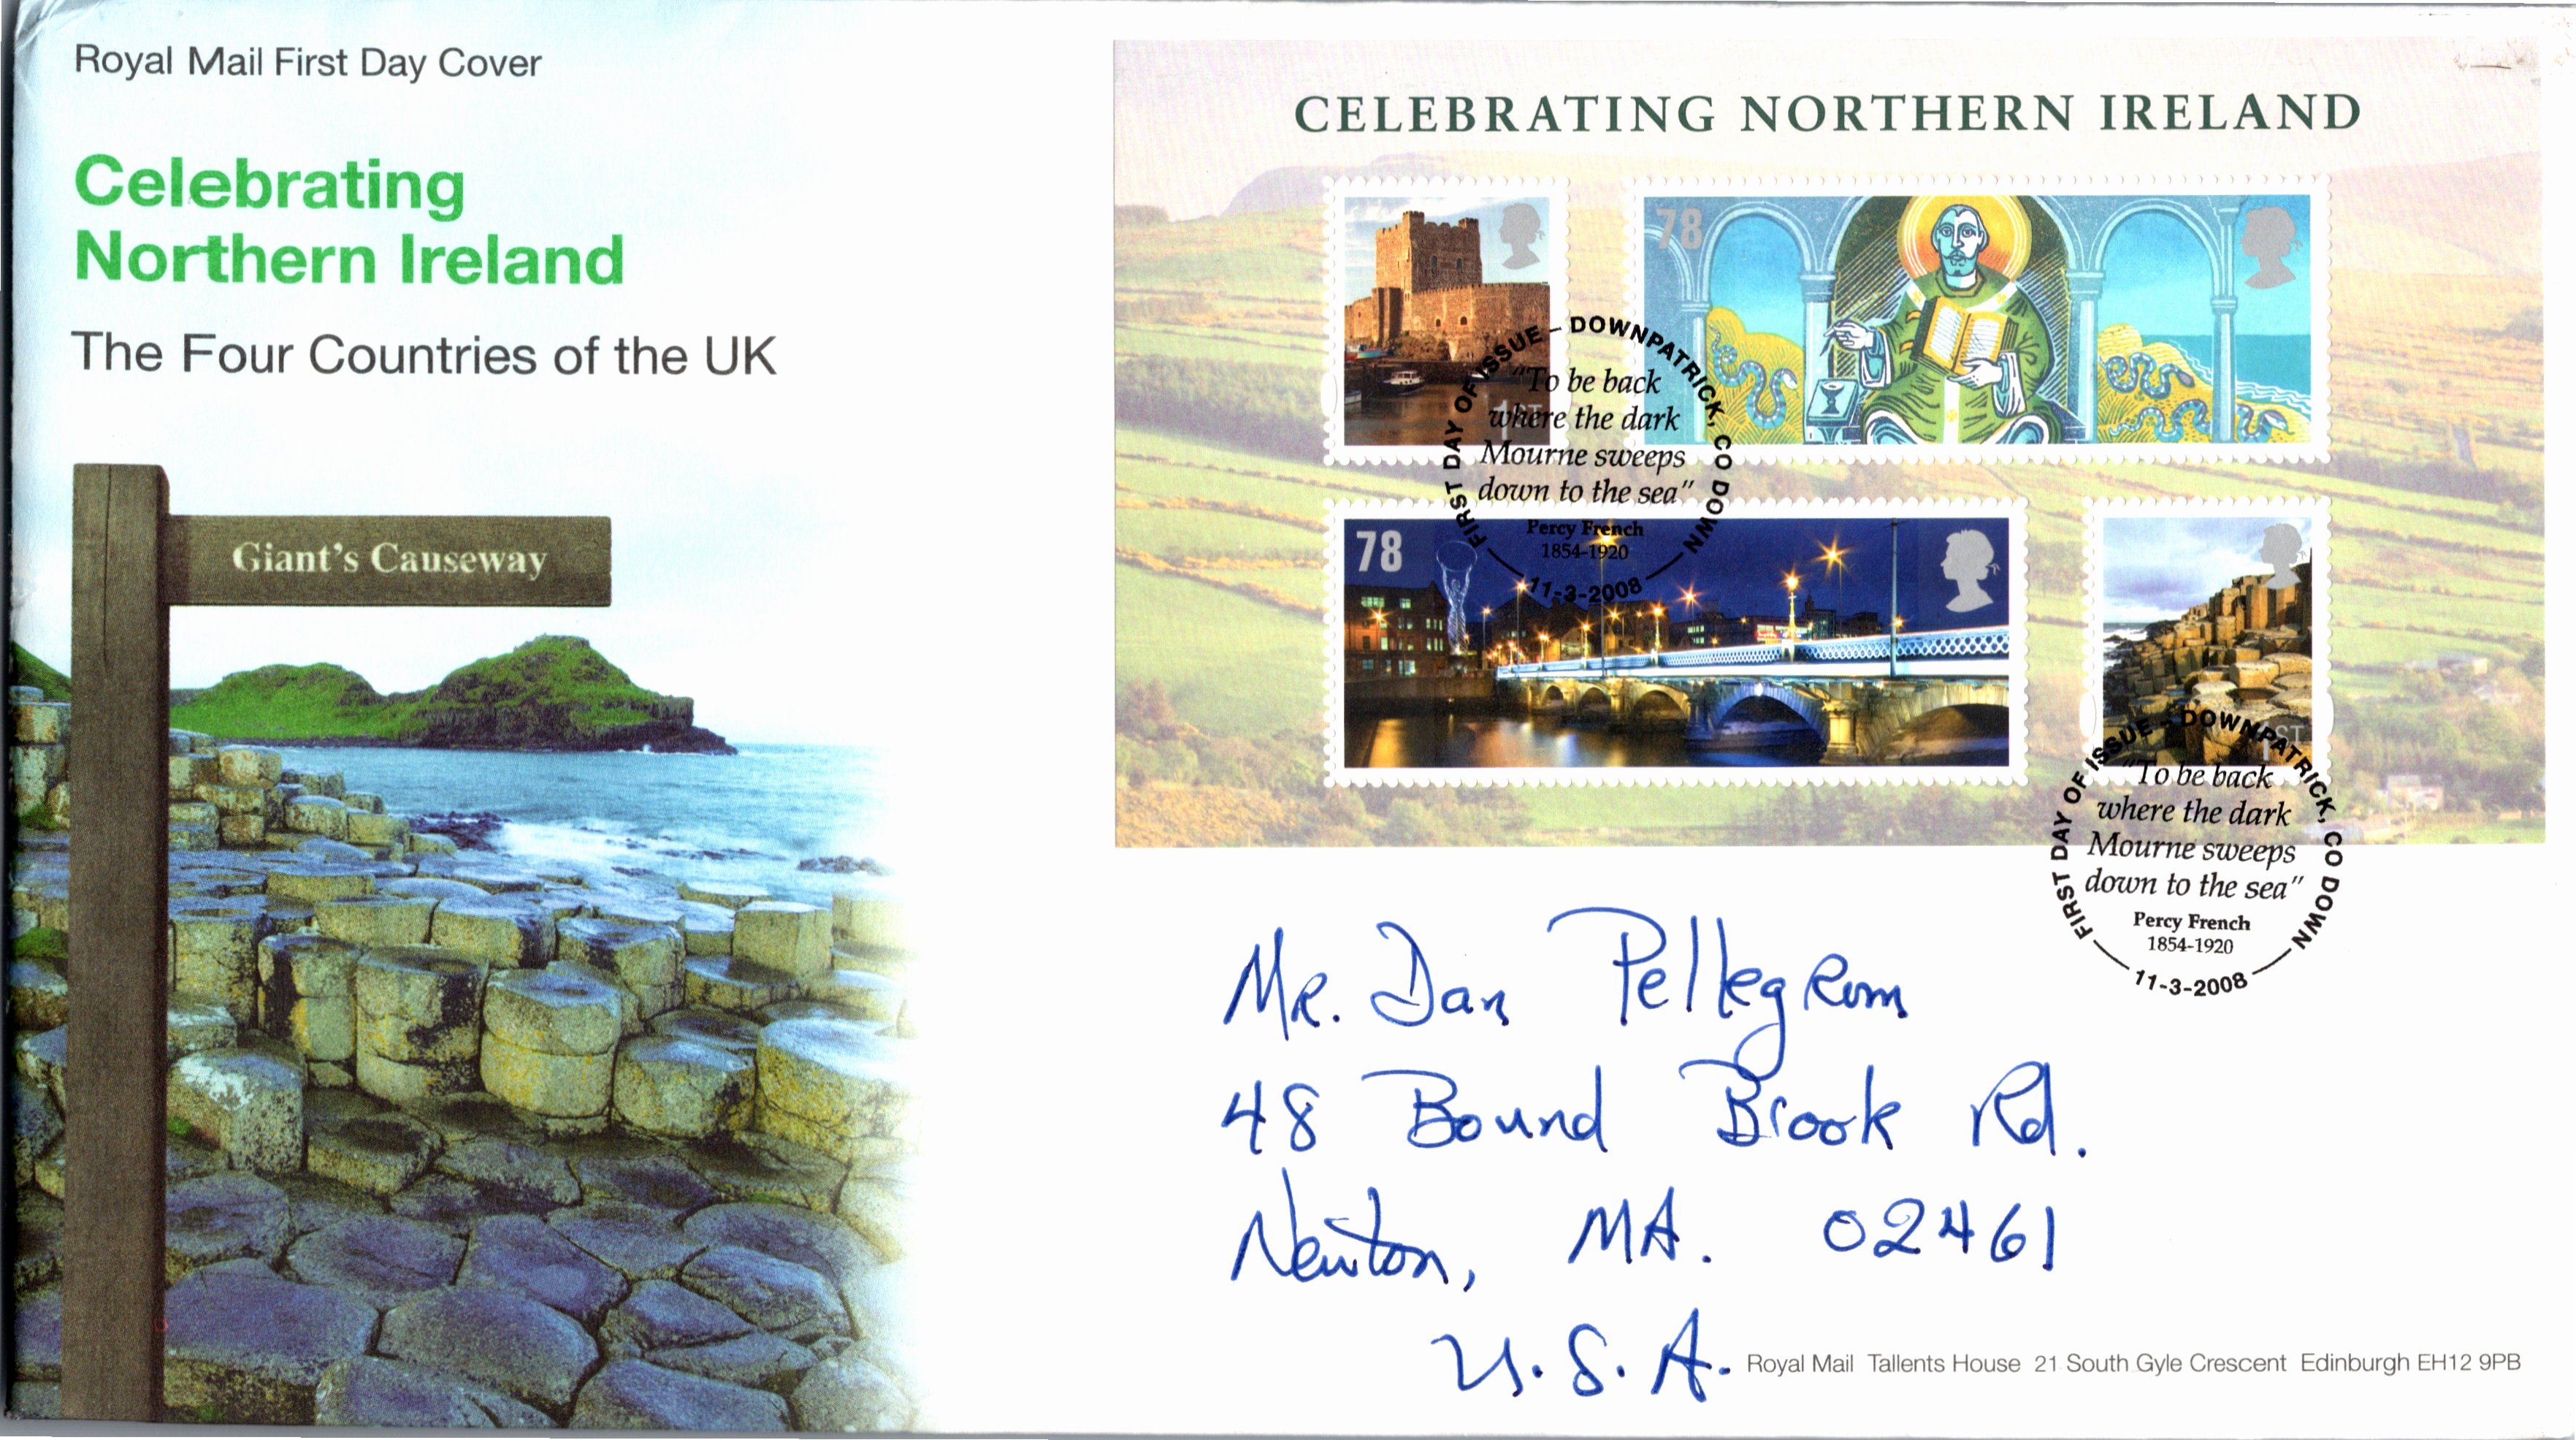 Royal Mail First Day Cover
Celebrating
Northern Ireland
The Four Countries of the UK
Giant's Causeway
CELEBRATING NORTHERN IRELAND
1ST
78
78
1ST
FIRST DAY OF ISSUE – DOWNPATRICK, CO DOWN
"To be back
where the dark
Mourne sweeps
down to the sea"
Percy French
1854-1920
11-3-2008
FIRST DAY OF ISSUE – DOWNPATRICK, CO DOWN
"To be back
where the dark
Mourne sweeps
down to the sea"
Percy French
1854-1920
11-3-2008
Mr. Dan Pellegrom
48 Bound Brook Rd.
Newton, MA. 02461
U.S.A.
Royal Mail Tallents House 21 South Gyle Crescent Edinburgh EH12 9PB